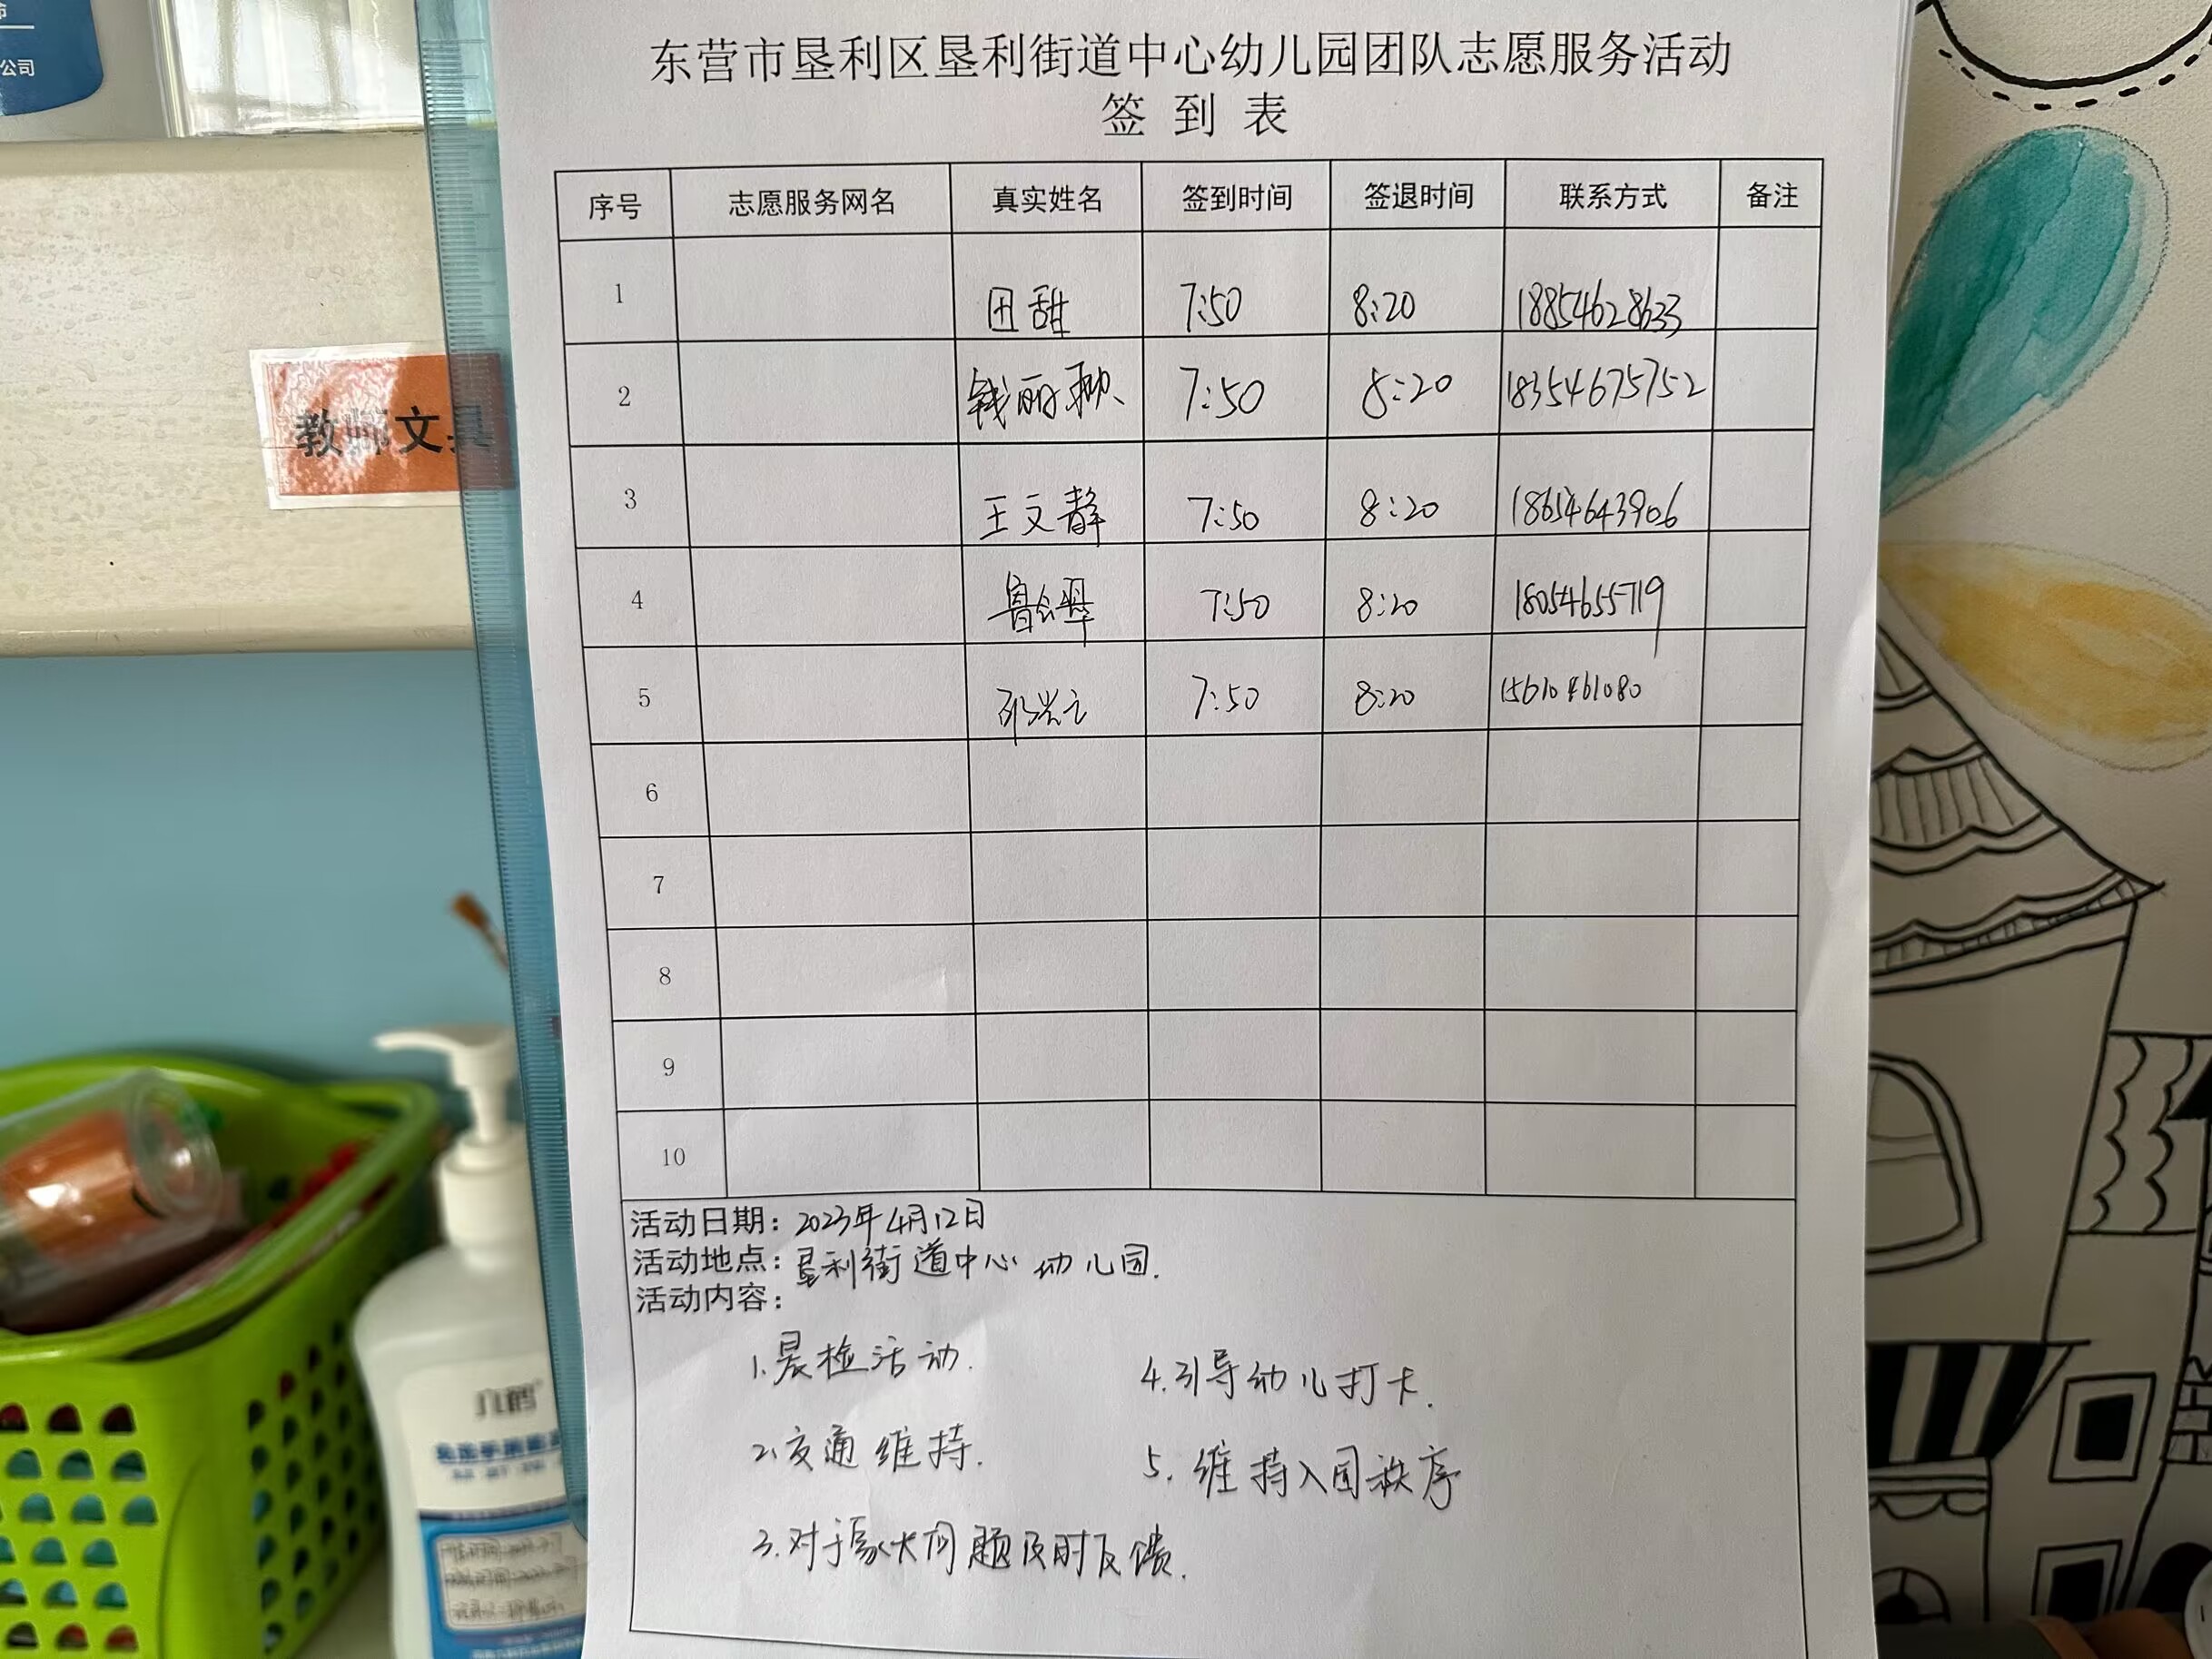 公司
教师文具
东营市垦利区垦利街道中心幼儿园团队志愿服务活动
签 到 表
序号 志愿服务网名 真实姓名 签到时间 签退时间 联系方式 备注
1 田甜 7:50 8:20 18854628633
2 钱丽 7:50 8:20 18354675752
3 王文静 7:50 8:20 18654643906
4 鲁 7:50 8:20 18054655719
5 7:50 8:20 15610461080
6
7
8
9
10
活动日期：2023年4月12日
活动地点：垦利街道中心幼儿园.
活动内容：
1.晨检活动.
4.引导幼儿打卡.
2.交通维持.
5.维持入园秩序
3.对于家长问题及时反馈.